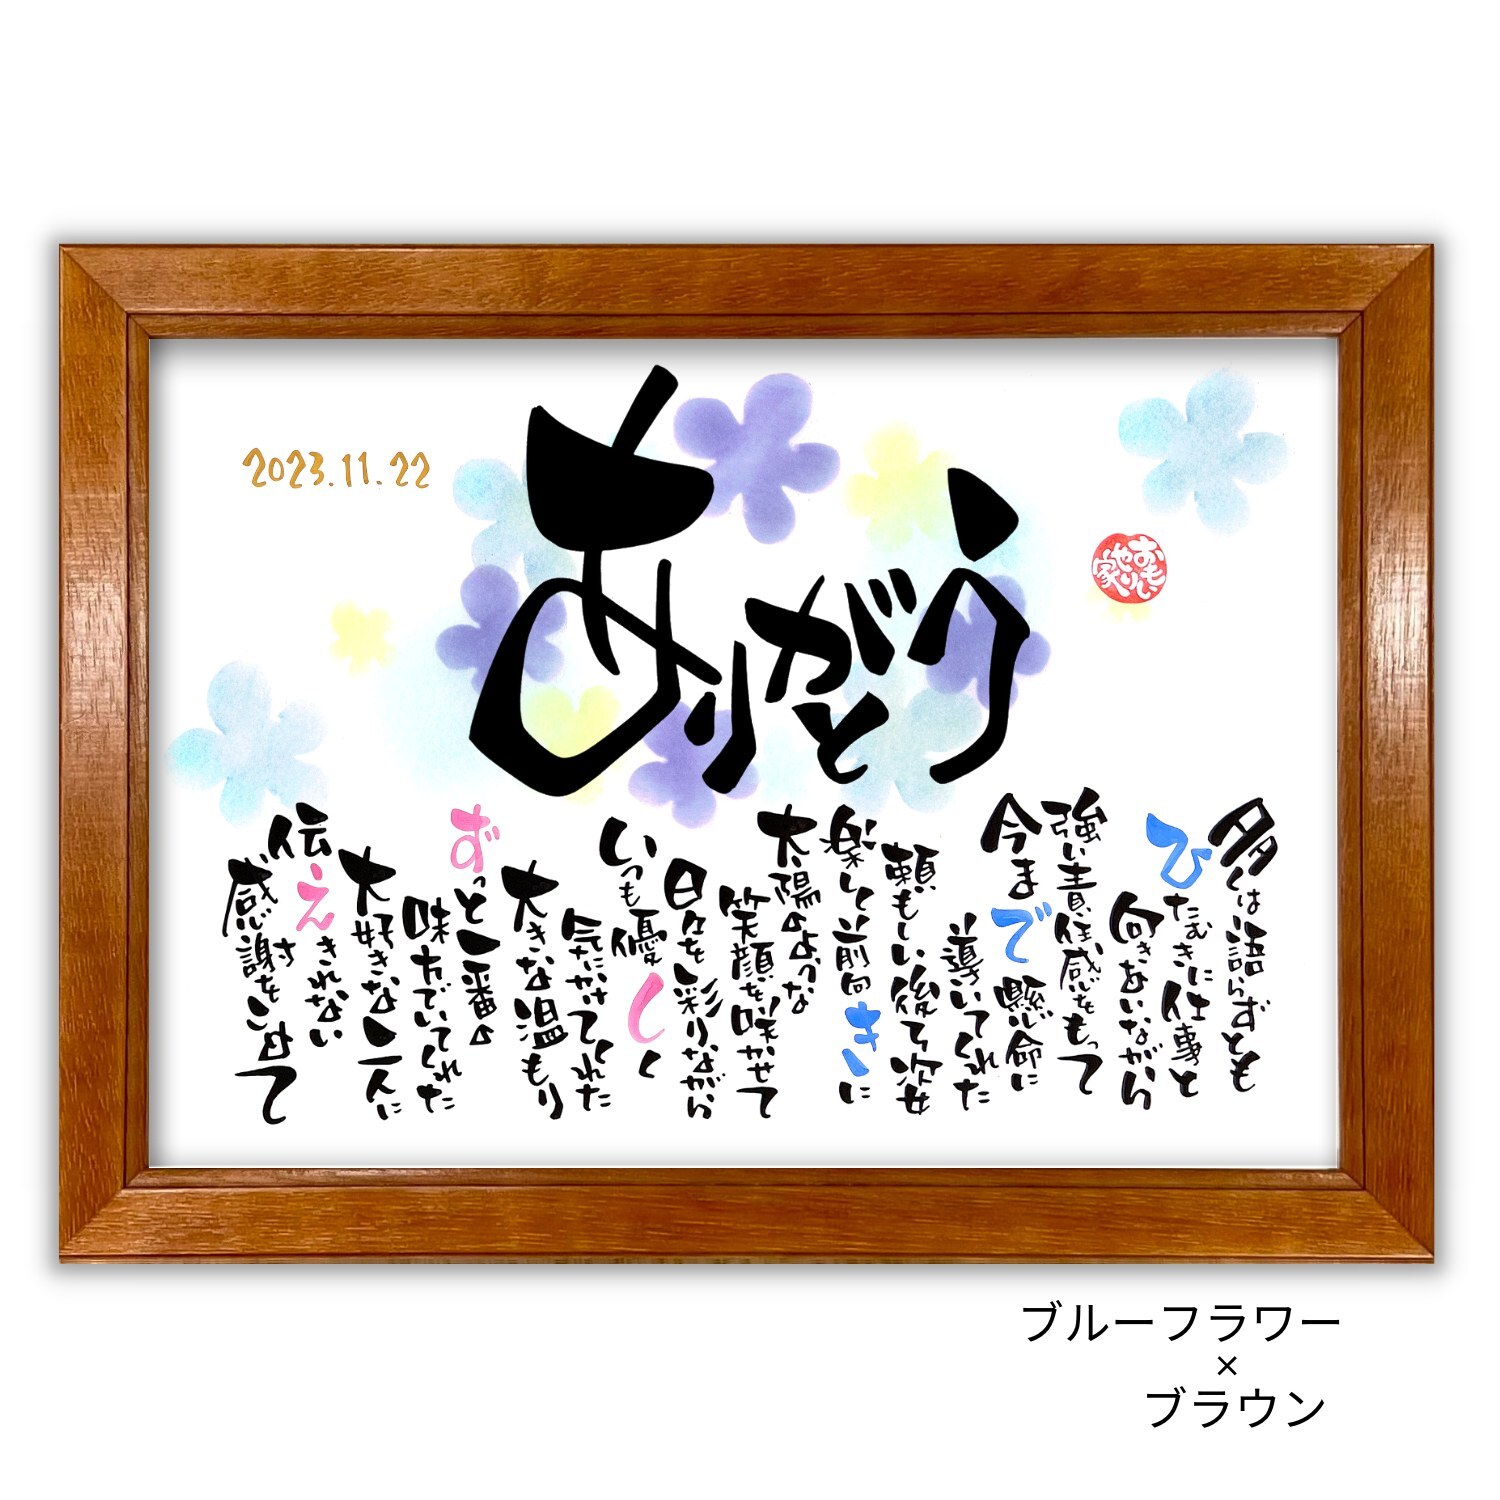 2023.11.22
ありがとう
おもい
やり
家
多くは語らずとも
ひたむきに仕事と
向きあいながら
強い責任感をもって
今まで懸命に
導いてくれた
頼もしい後ろ姿
楽しく前向きに
太陽のような
笑顔を咲かせて
日々を彩りながら
いつも優しく
気にかけてくれた
大きな温もり
ずっと一番の
味方でいてくれた
大好きな二人に
伝えきれない
感謝をこめて
ブルーフラワー
×
ブラウン